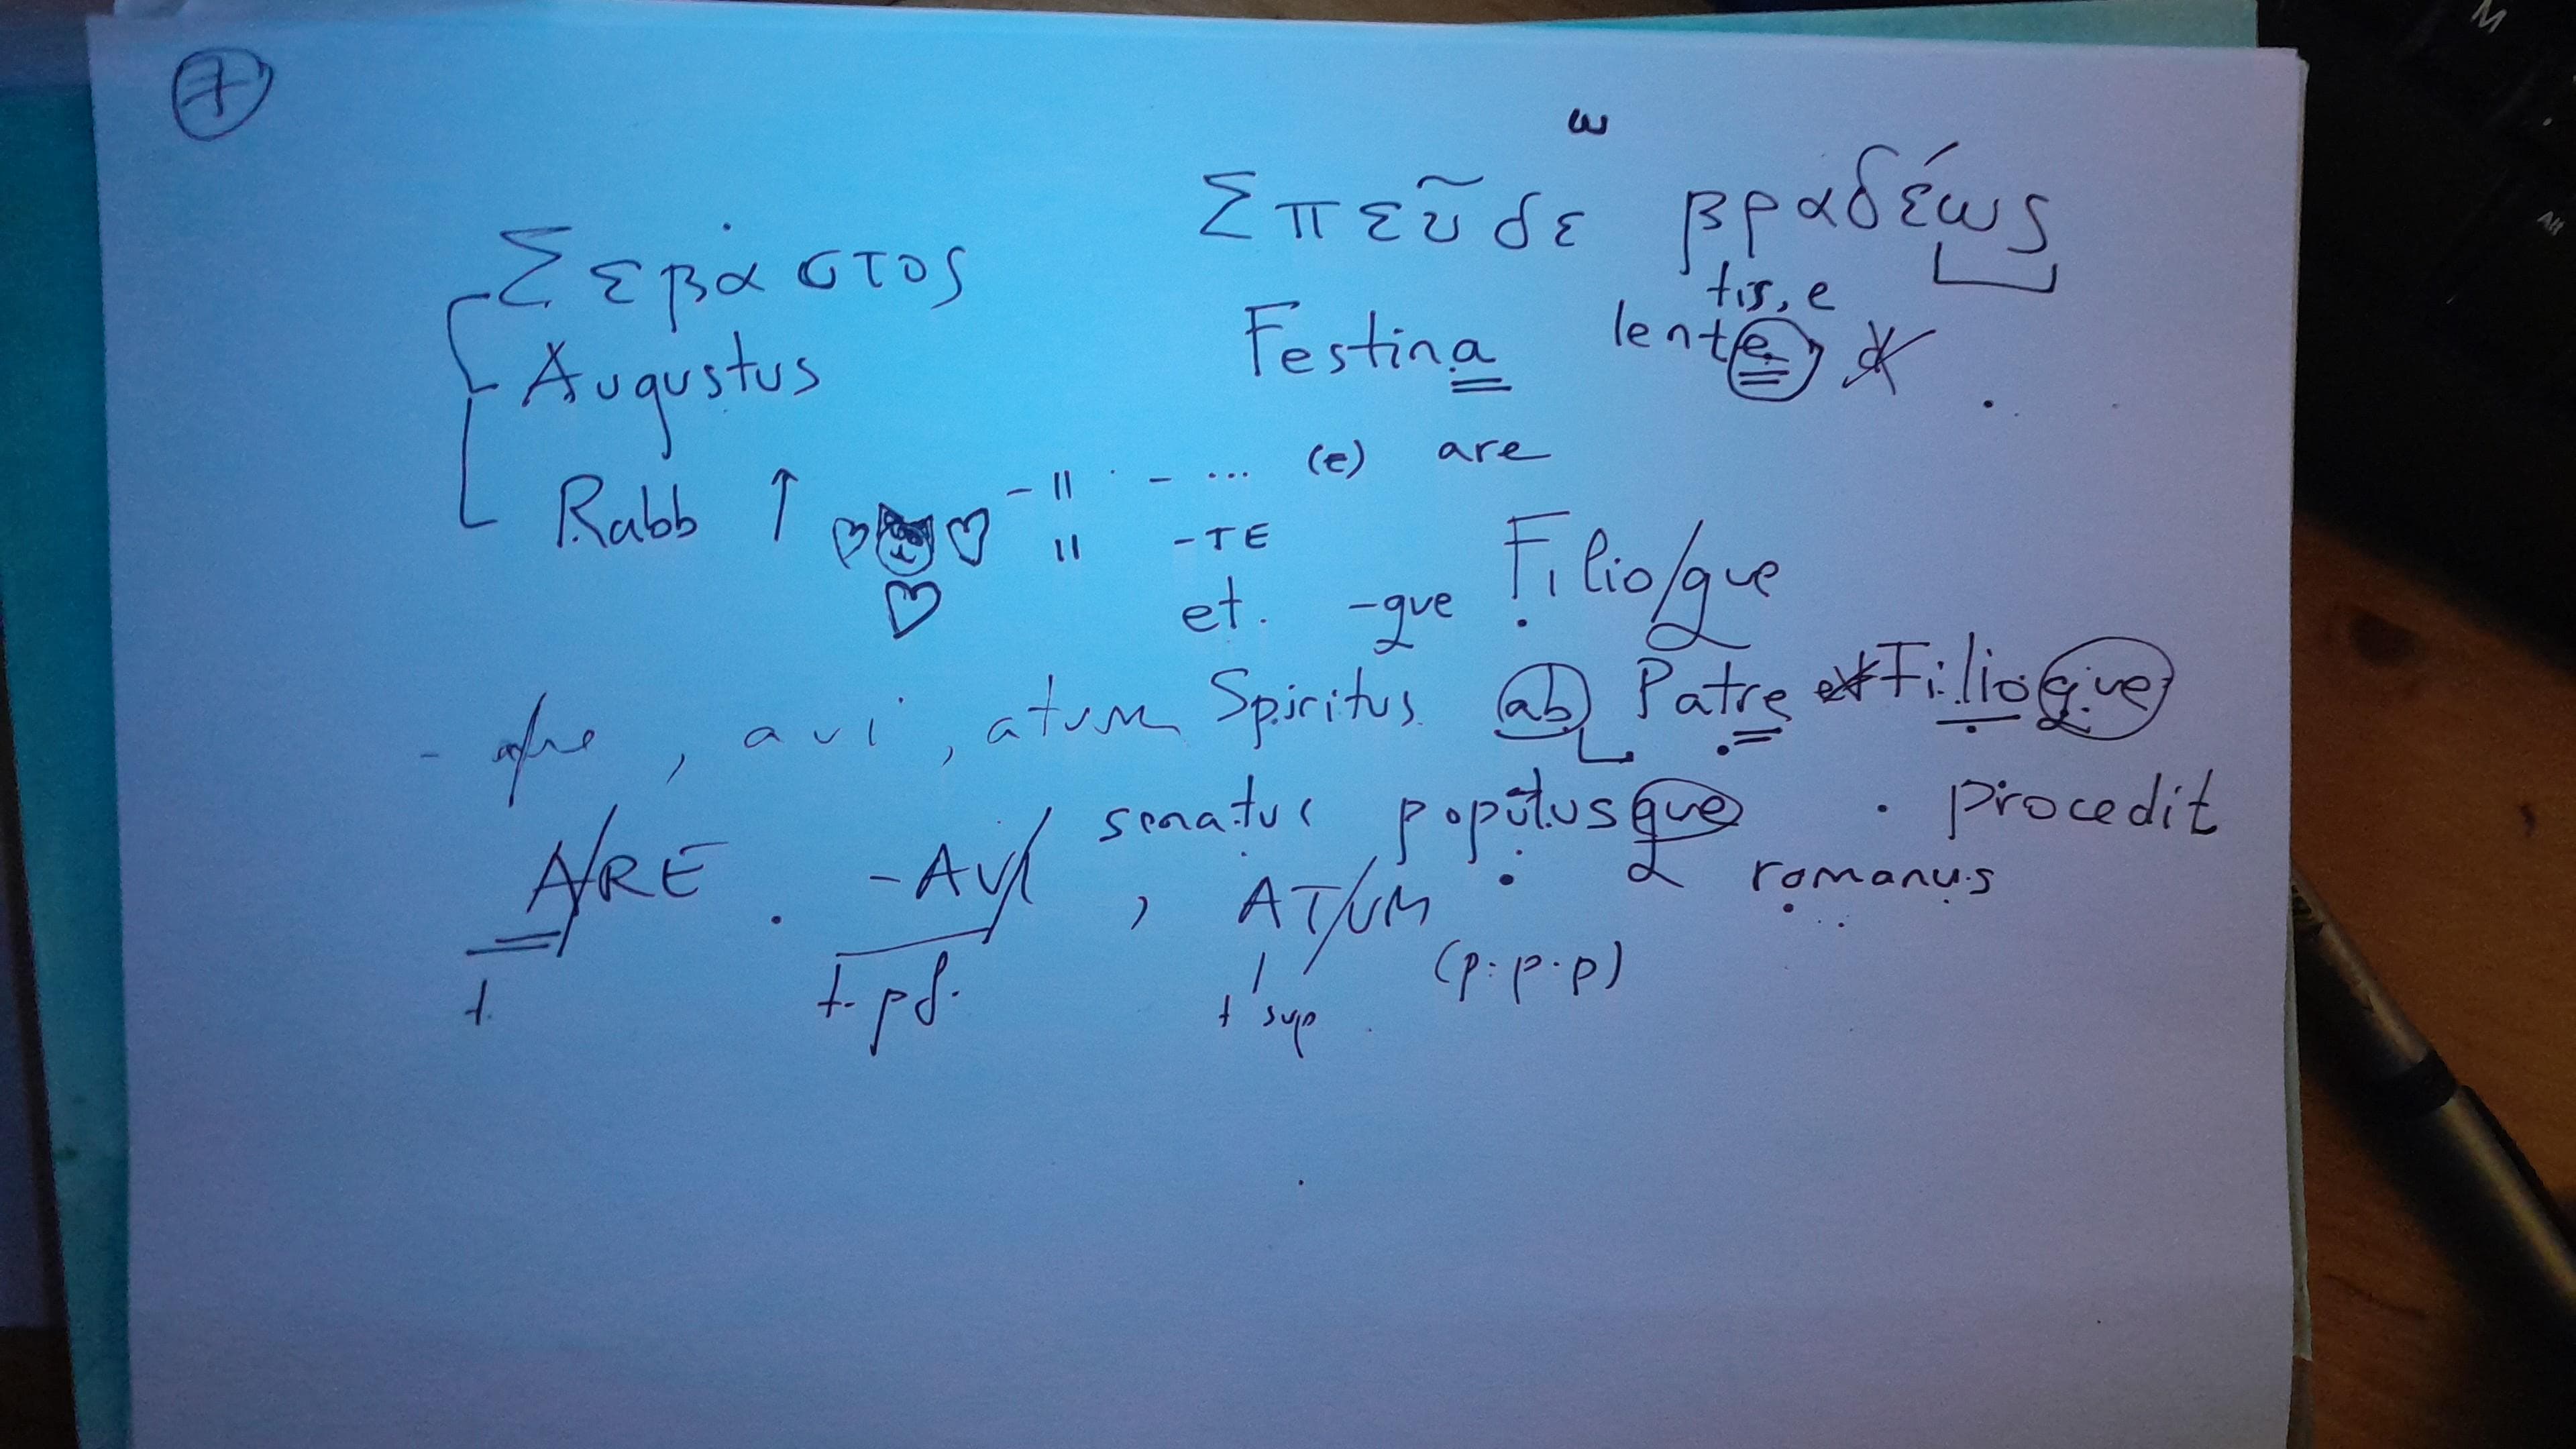 7
ω
Σπεῦδε βραδέως
Σεβάστος
tis, e
Festina lente
Augustus
(e) are
Rabb ↑ - ıı - ...
ıı -TE
et. -que Filio/que
, avi, atum Spiritus ab Patre et Filioque
senatus populusque procedit
A/RE . -AV/I , AT/UM romanus
t. t. pf. t sup (p.p.p)